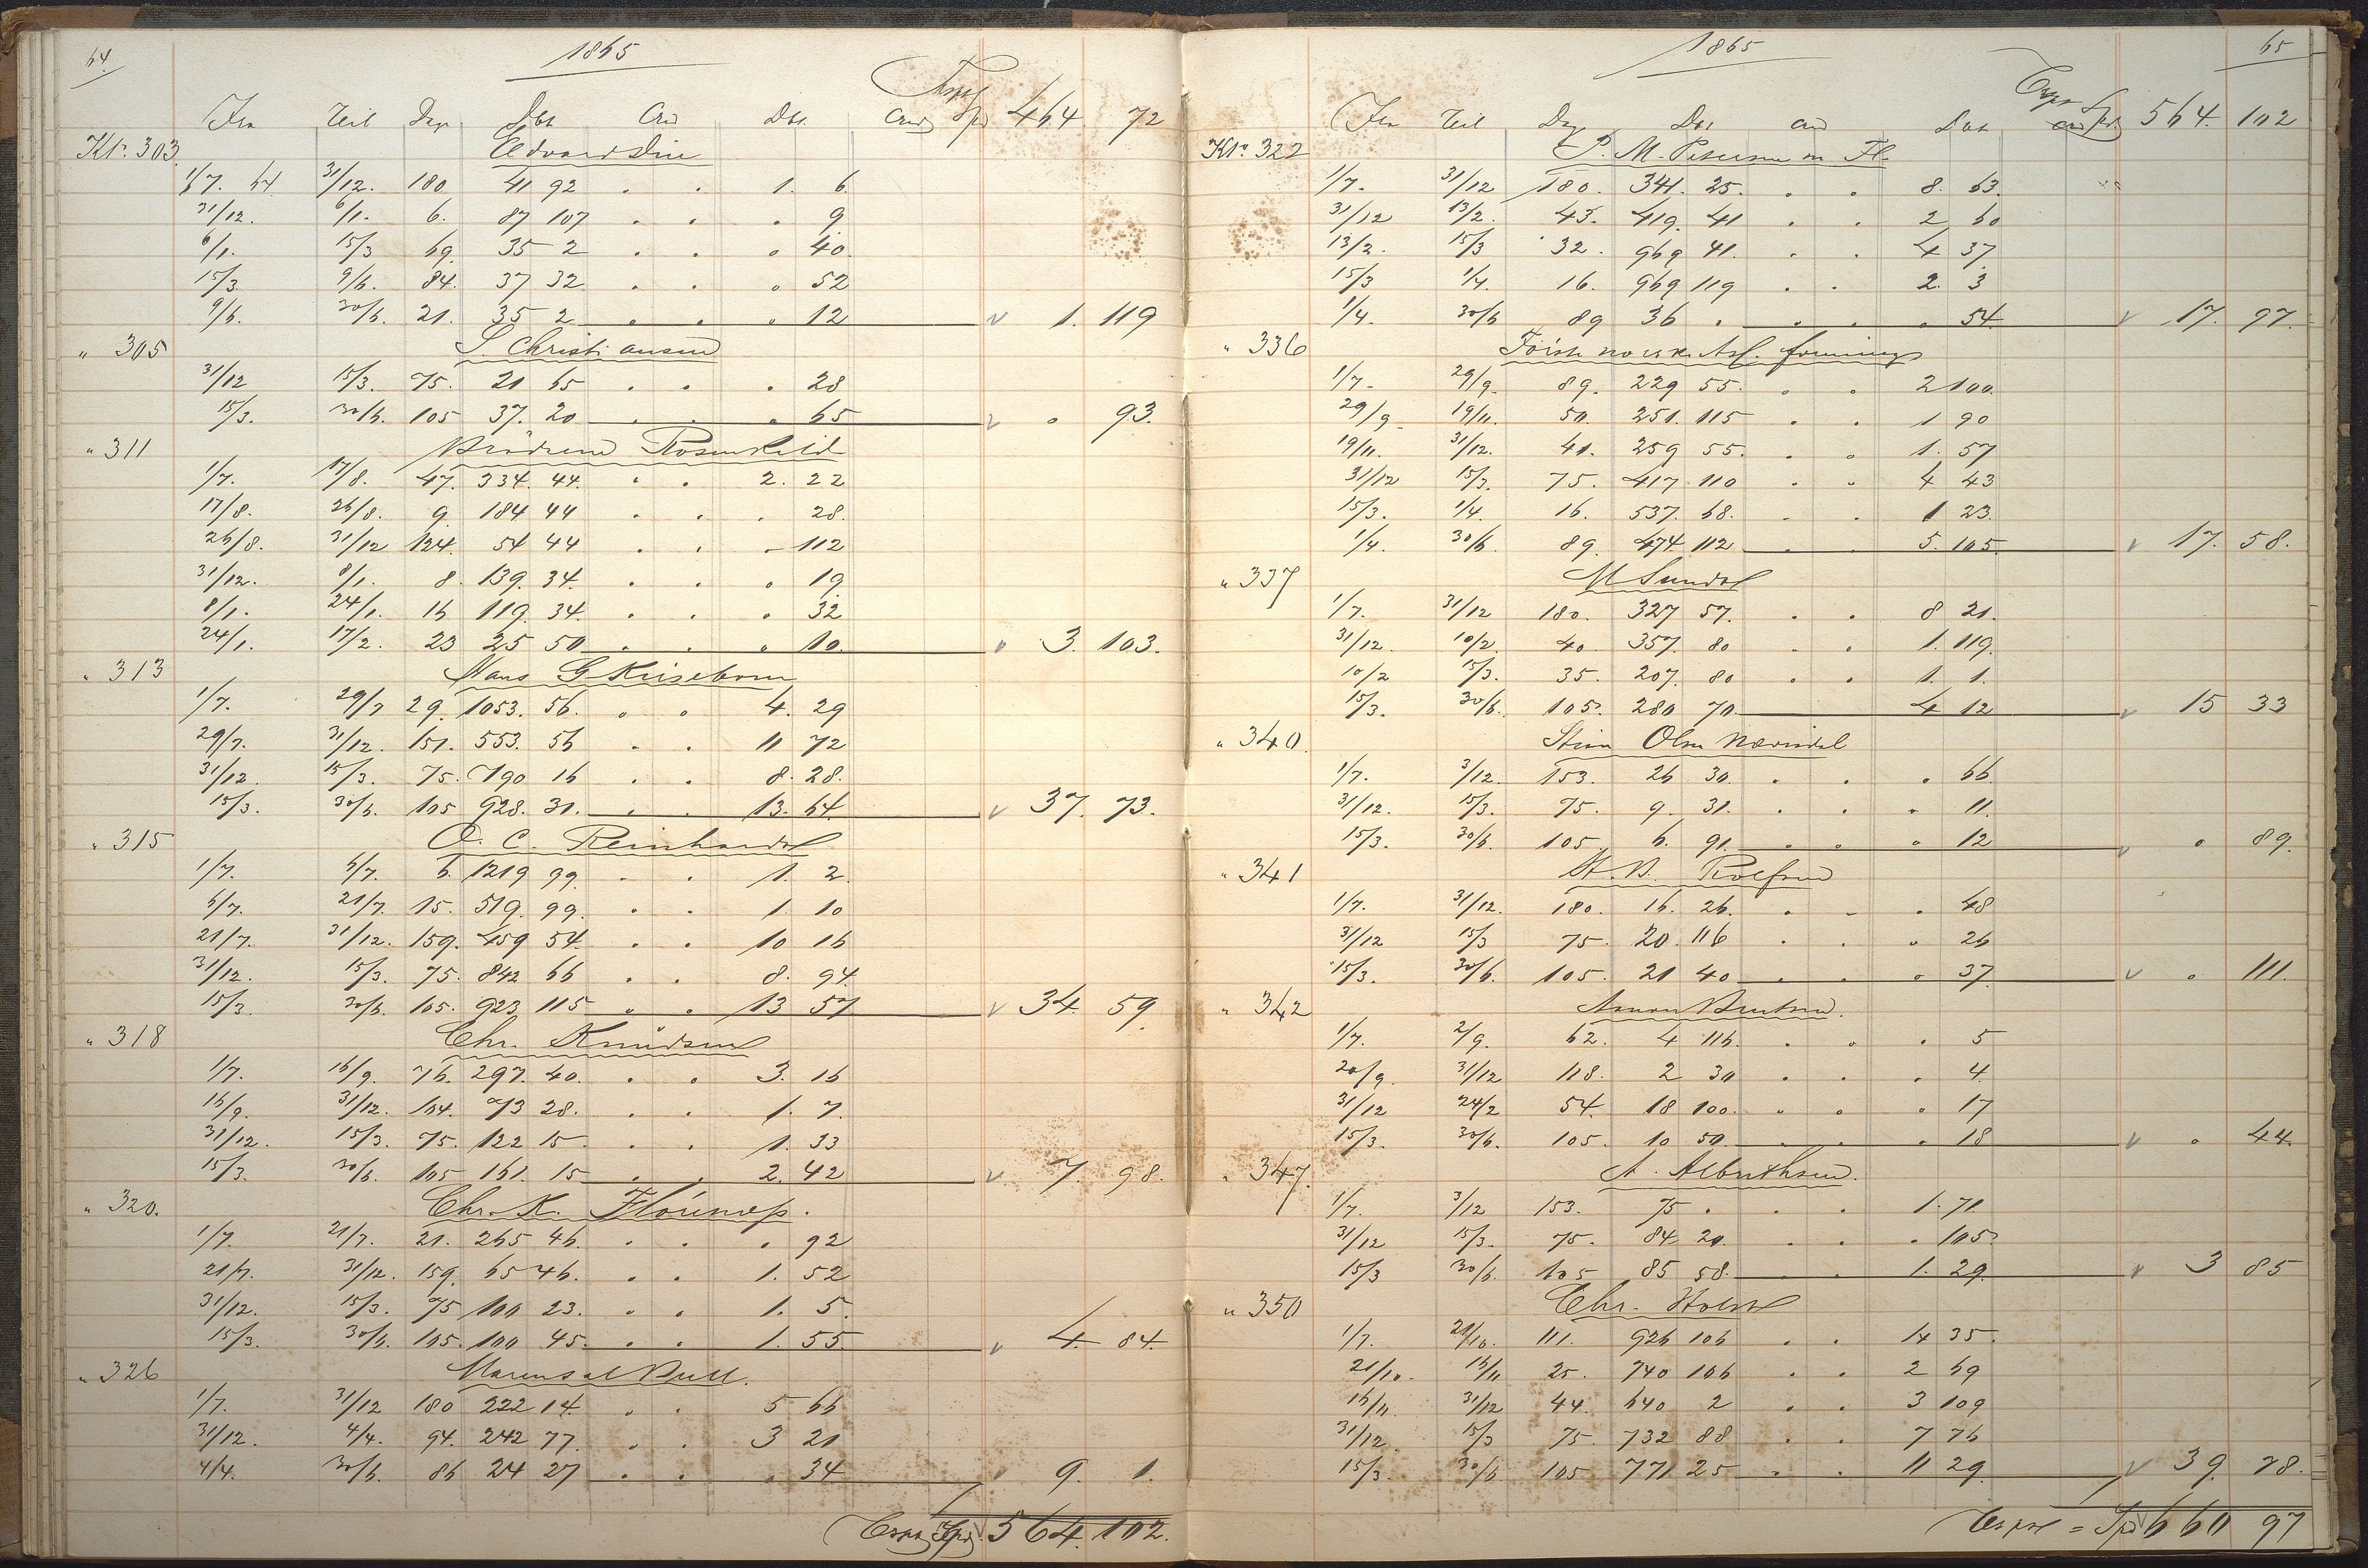 64.
1865
Fra Teil Dage Deb Cred Deb. Cred Trsp Spd 464. 72
Kto. 303. Edvard
1/7. 64 31/12. 180. 41 92 . . 1. 6.
31/12. 6/1. 6. 87 107 . . . 9
6/1. 15/3 69. 35 2 . . . 40.
15/3. 9/6. 84. 37 32 . . . 52
9/6. 30/6. 21. 35 2 . . . 12 v 1. 119
" 305 S. Christiansen
31/12 15/3. 75. 21 65 . . . 28
15/3. 30/6. 105 37. 20 . . . 65 v . 93.
" 311 Brödrene Rosenkild
1/7. 17/8. 47. 334. 44. . . 2. 22
17/8. 26/8. 9 184 44 . . . 28.
26/8. 31/12 124. 54 44 . . - 112
31/12. 8/1. 8. 139. 34. . . . 19
8/1. 24/1. 16 119. 34. . . . 32
24/1. 17/2. 23 25 50 . . . 10. v 3. 103.
" 313 Hans G Krisebom
1/7. 29/7 29. 1053. 56. . . 4. 29
29/7. 31/12. 151. 553. 56 . . 11 72
31/12. 15/3. 75. 790 16 . . 8. 28.
15/3. 30/6. 105 928. 31. . . 13. 64. v 37. 73.
" 315 O. C. Reinhardt
1/7. 6/7. 6. 1219 99. . . 1. 2.
6/7. 21/7. 15. 519. 99. . . 1. 10
21/7. 31/12. 159. 459 54. . . 10 16
31/12. 15/3. 75. 842 66 . . 8. 94.
15/3. 30/6. 105. 923 115 . . 13 57 v 34. 59.
" 318 Chr. Knudsen
1/7. 16/9. 76. 297. 40. . . 3. 16
16/9. 31/12. 104. 73 28. . . 1. 7.
31/12. 15/3. 75. 122 15 . . 1. 33
15/3. 30/6. 105 161. 15 . . 2. 42 v 7. 98.
" 320. Chr. K. Flörnæs.
1/7. 21/7. 21. 265 46. . . . 92
21/7. 31/12. 159. 65 46. . . 1. 52
31/12. 15/3. 75 100 23. . . 1. 5.
15/3. 30/6. 105. 100 45. . . 1. 55. v 4. 84.
" 326 Bull.
1/7. 31/12 180 222 14. . . 5 66
31/12. 4/4. 94. 242 77. . . 3 21
4/4. 30/6. 86 24 27 . . . 34 v 9. 1.
Trsp Spd 564. 102.
1865
65
Fra Teil Dag Deb cred Deb cred Trsp Spd 564. 102
Kto. 322 P. M. Petersen m Fl.
1/7. 31/12 180. 341. 25. . . 8. 63.
31/12 13/2. 43. 419. 41 . . 2 60
13/2. 15/3 32. 969 41. . . 4 37
15/3 1/4. 16. 969 119 . . 2. 3
1/4. 30/6 89 36 . . . . 54. v 17. 97.
" 336 Förste norske
1/7. 29/9. 89. 229 55. . . 2 100.
29/9. 19/11. 50. 251. 115 . . 1 90
19/11. 31/12. 41. 259 55. . . 1. 57
31/12 15/3. 75. 417 110 . . 4 43
15/3. 1/4. 16. 537. 68. . . 1 23.
1/4. 30/6 89. 474 112 . . 5. 105. v 17. 58.
" 337 M Sundt
1/7. 31/12 180. 327 57. . . 8 21.
31/12. 10/2. 40. 357. 80 . . 1. 119.
10/2 15/3. 35. 207. 80 . . 1. 1.
15/3. 30/6. 105. 280 70. 4 12 v 15 33
" 340. Olsen
1/7. 3/12. 153. 26 30. . . . 66
31/12. 15/3. 75. 9. 31. . . . 11.
15/3. 30/6. 105 6. 91. . . . 12 v . 89.
" 341 Rolfsen
1/7. 31/12. 180. 16. 26. . . . 48
31/12 15/3 75. 20. 116 . . . 26
15/3. 30/6. 105. 21 40 . . . 37. v . 111.
" 342
1/7. 2/9. 62. 4 116. . . . 5
20/9. 31/12 118. 2 30 . . . 4.
31/12 24/2 54. 18 100. . . . 17
15/3. 30/6. 105. 10 50. . . . 18 v . 44.
" 347. A. Albrethsen.
1/7. 3/12 153. 75 . . . 1. 71.
31/12 15/3. 75. 84 20. . . . 105.
15/3 30/6. 105 85 58. . . 1. 29. v 3 85
" 350 Chr. Holst
1/7. 21/10. 111. 926 106 . . 14 35.
21/10. 16/11 25. 740 106 . . 2 69
16/11. 31/12 44. 640 2 . . 3 109
31/12. 15/3 75. 732 88 . . 7 76
15/3. 30/6 105 771 25 . . 11 29. v 39. 78.
Trspt = Spd 660 97